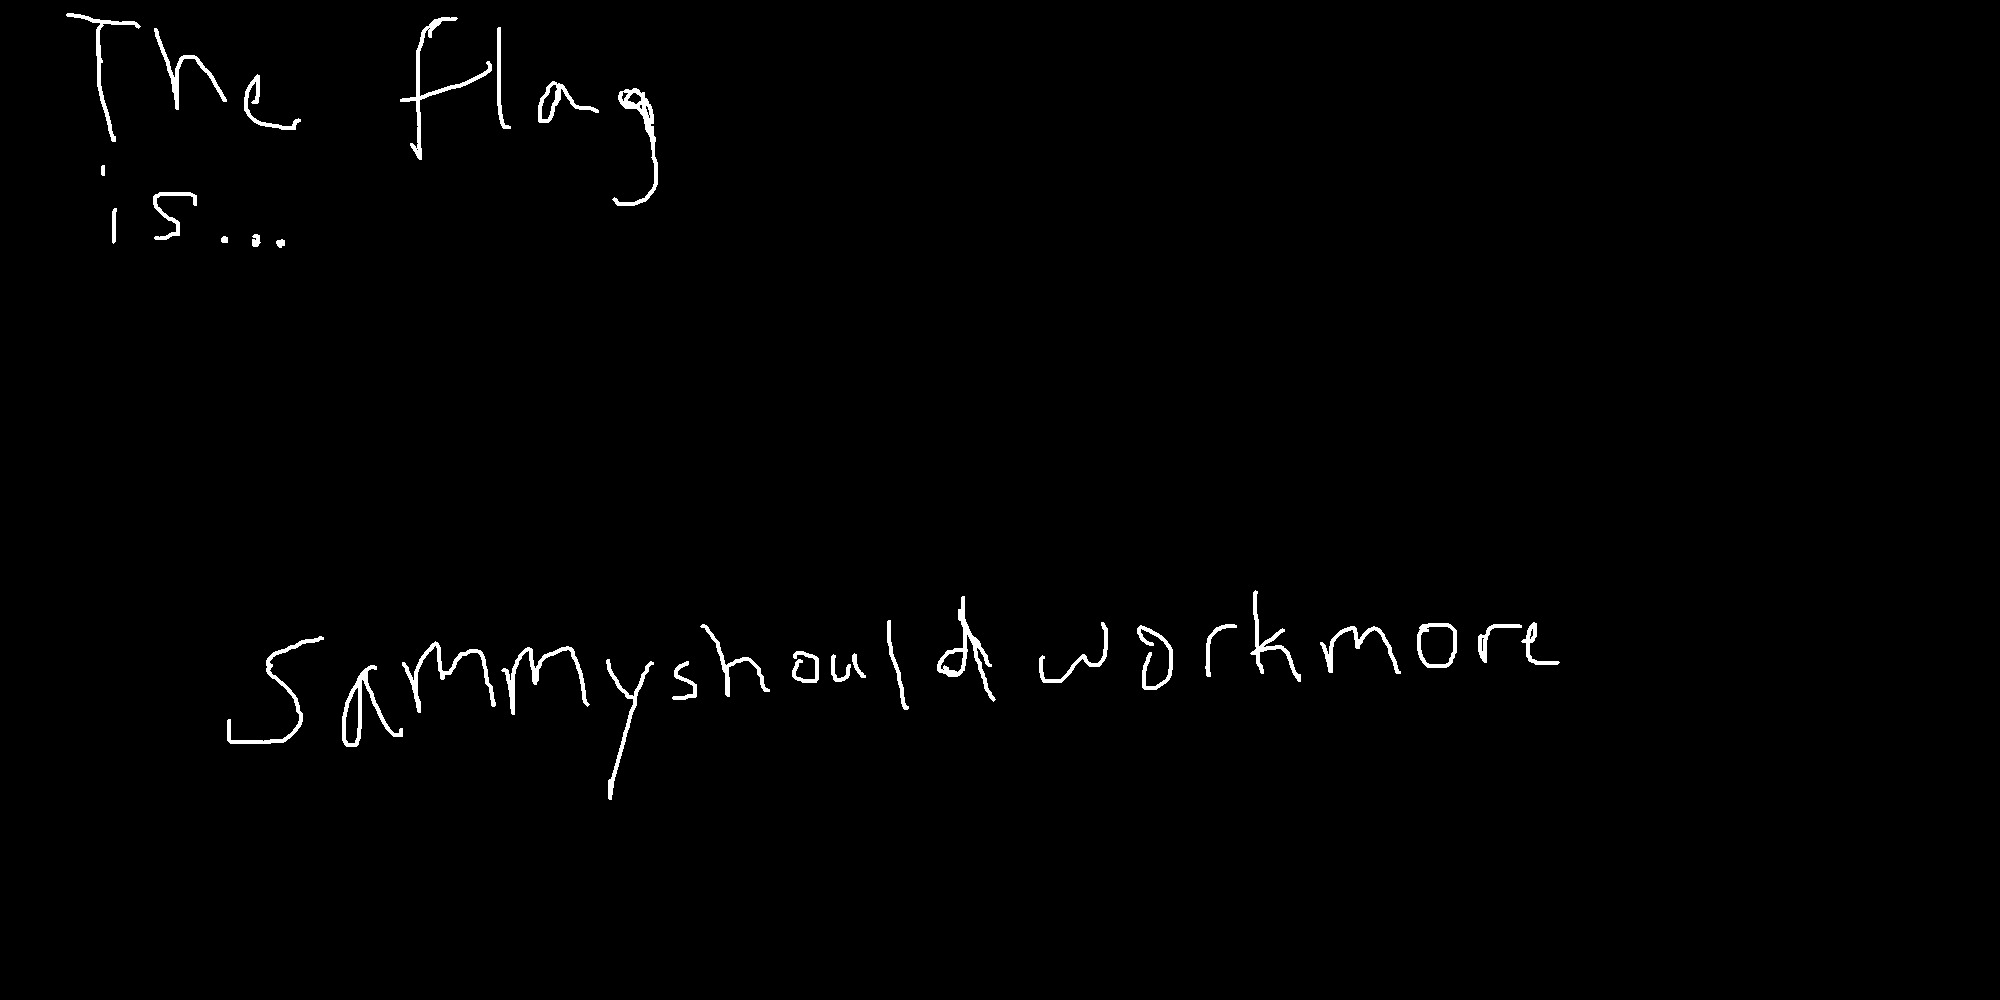 The flag
is...
Sammyshouldworkmore